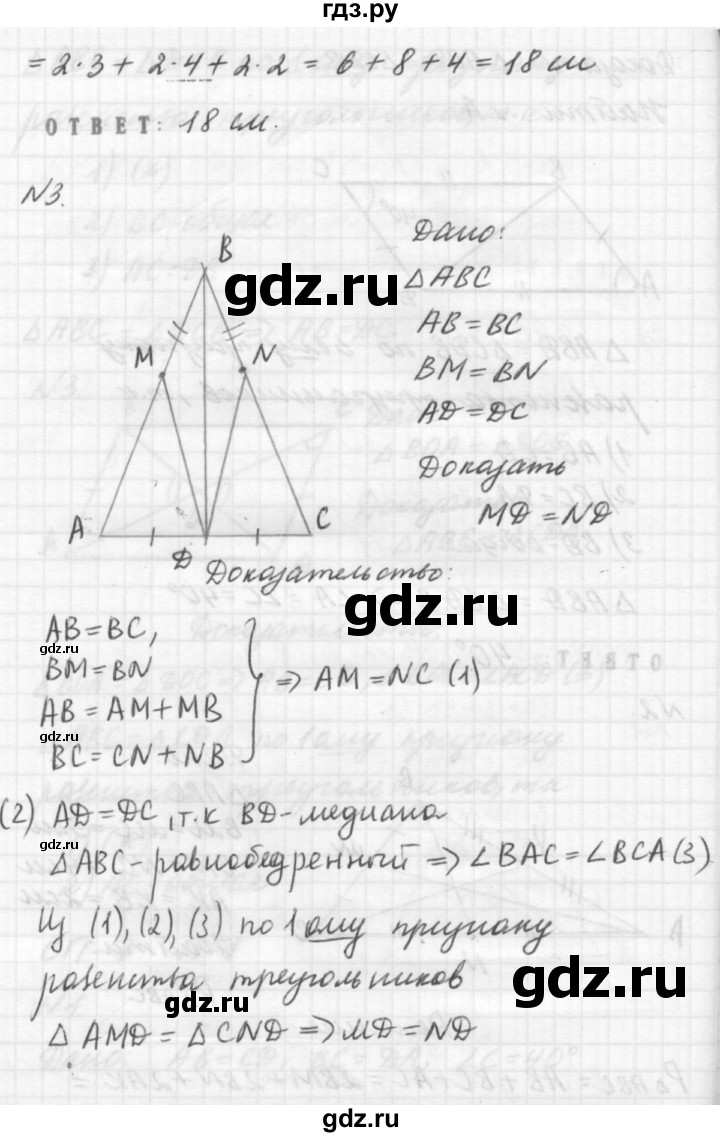 гдз.ру
= 2·3 + 2·4 + 2·2 = 6 + 8 + 4 = 18 см
ОТВЕТ: 18 см.
№3.
B
M
N
A
D
C
Дано:
△ABC
AB = BC
BM = BN
AD = DC
Доказать
MD = ND
gdz.ru
Доказательство:
gdz.ru
gdz.ru
AB = BC,
BM = BN
AB = AM + MB
BC = CN + NB
⇒ AM = NC (1)
gdz.ru
(2) AD = DC, т.к BD - медиана
gdz.ru
△ABC - равнобедренный ⇒ ∠BAC = ∠BCA (3)
Из (1), (2), (3) по 1ому признаку
равенства треугольников
gdz.ru
gdz.ru
△ AMD = △ CND ⇒ MD = ND
gdz.ru